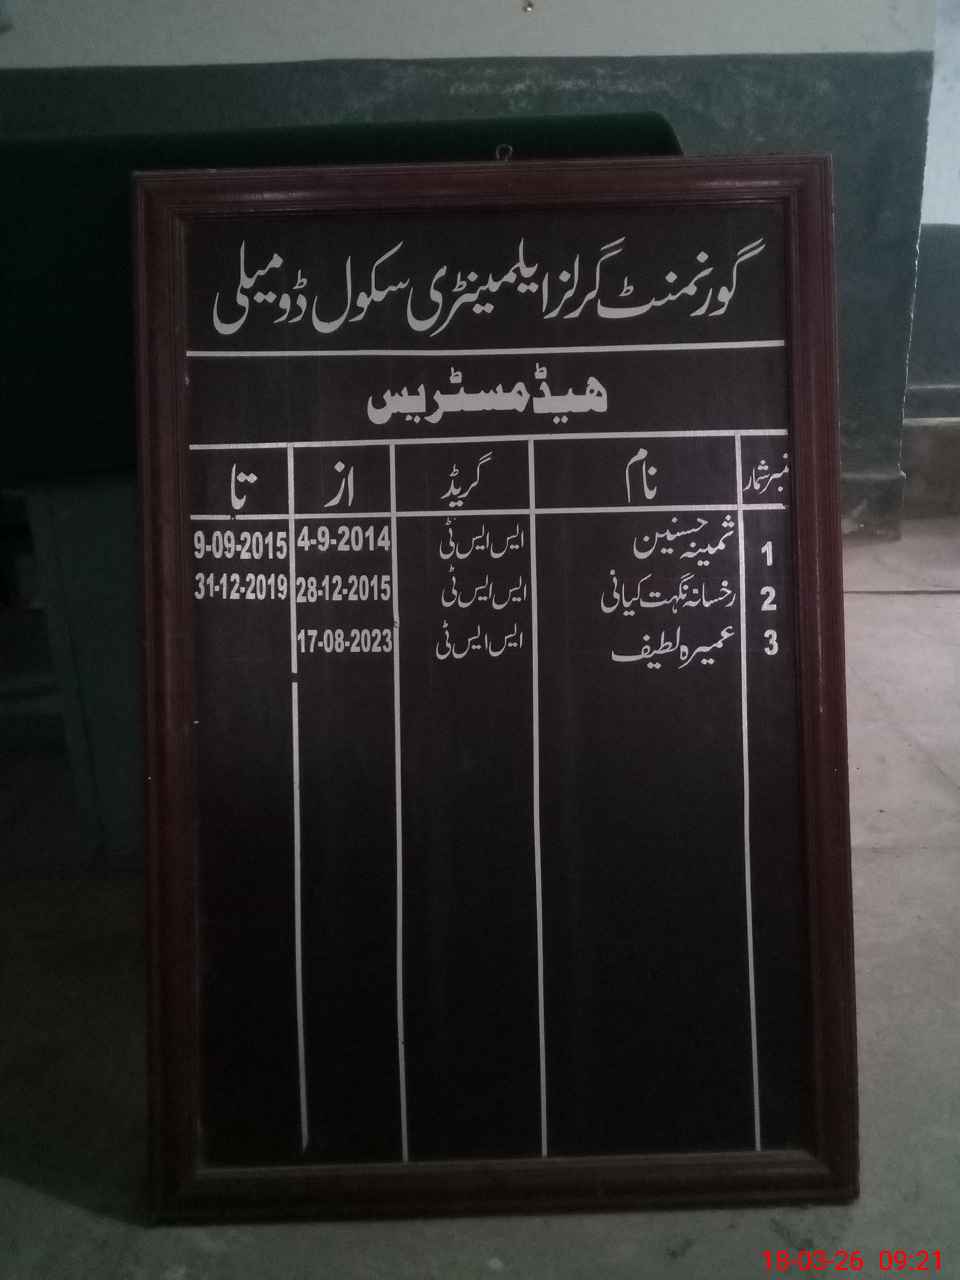 گورنمنٹ گرلز ایلیمینٹری سکول ڈومیلی
ھیڈمسٹریس
نمبرشمار نام گریڈ از تا
1 ثمینہ حسنین ایس ایس ٹی 4-9-2014 9-09-2015
2 رخسانہ نگہت کیانی ایس ایس ٹی 28-12-2015 31-12-2019
3 عمیرہ لطیف ایس ایس ٹی 17-08-2023
18-03-26 09:21